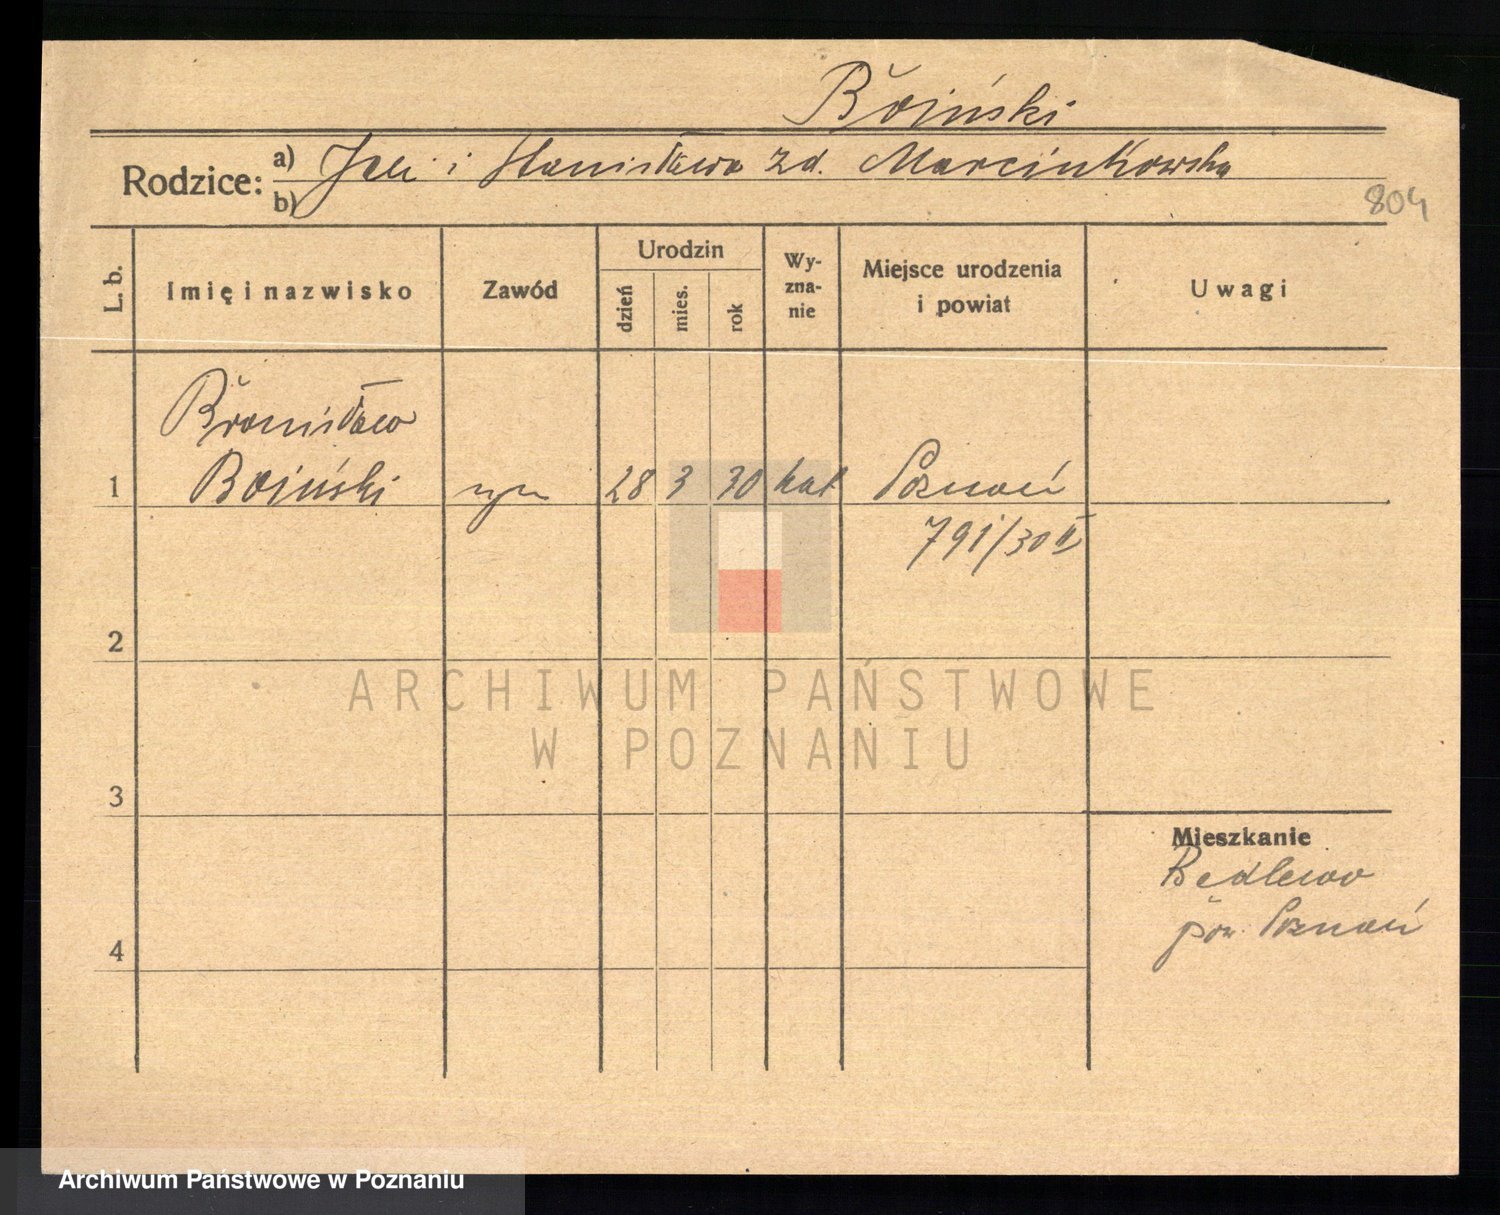 Boiński
Rodzice: a) i Stanisława zd. Marcinkowska
b)
804
L. b.
Imię i nazwisko
Zawód
Urodzin
dzień
mies.
rok
Wy-
zna-
nie
Miejsce urodzenia
i powiat
Uwagi
Bronisław
1 Boiński syn 28 3 30 kat Poznań
791/30 II
2
3
4
Mieszkanie
Bedlewo
pow. Poznań
ARCHIWUM PAŃSTWOWE
W POZNANIU
Archiwum Państwowe w Poznaniu